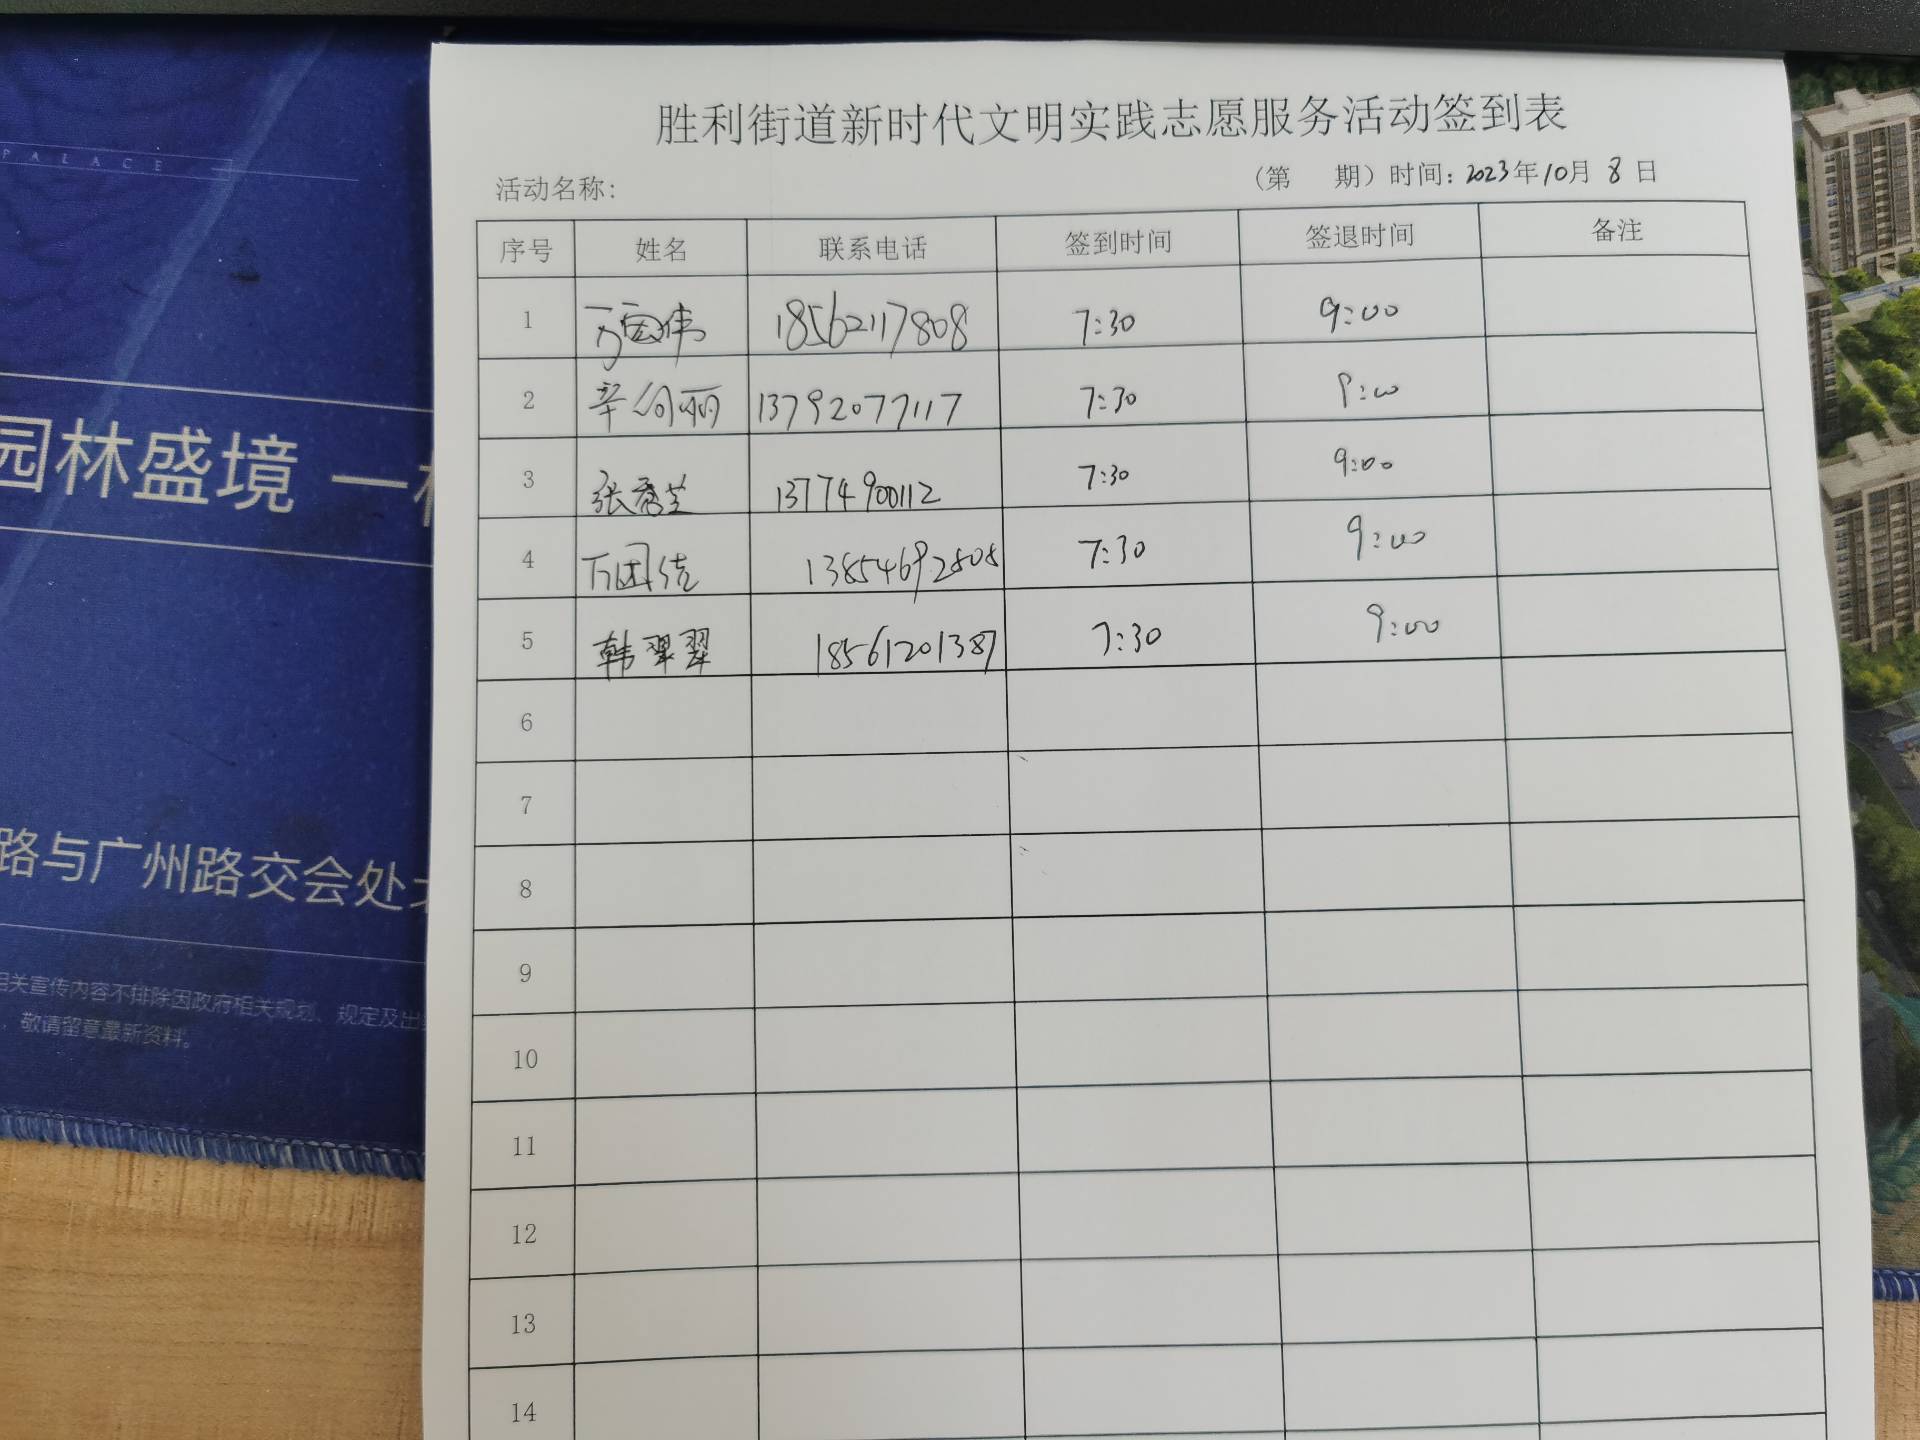 胜利街道新时代文明实践志愿服务活动签到表
活动名称: （第 期）时间: 2023年10月8日
序号 姓名 联系电话 签到时间 签退时间 备注
1 万国伟 18562117808 7:30 9:00
2 辛向丽 13792077117 7:30 9:00
3 张秀芝 13774900112 7:30 9:00
4 万团结 13854692808 7:30 9:00
5 韩翠翠 18561201387 7:30 9:00
6
7
8
9
10
11
12
13
14
PALACE
园林盛境 一
路与广州路交会处
相关宣传内容不排除因政府相关规划、规定及出
，敬请留意最新资料。